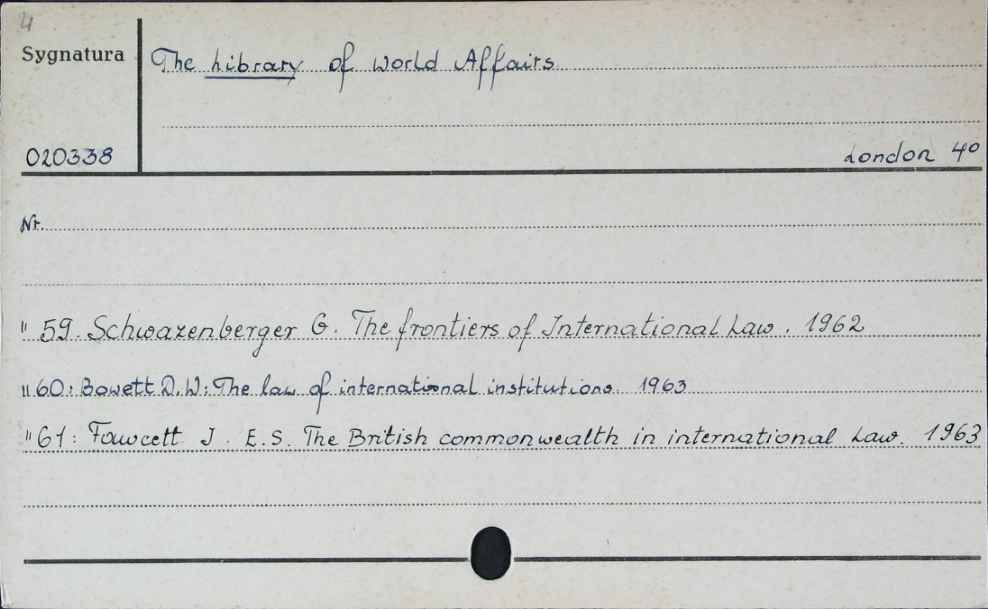 4
Sygnatura
The Library of World Affairs
020338
London 4°
Nr.
" 59. Schwazenberger G. The frontiers of International Law. 1962
" 60: Bowett D.W: The law of international institutions. 1963
" 61: Fawcett J. E.S. The British commonwealth in international Law. 1963